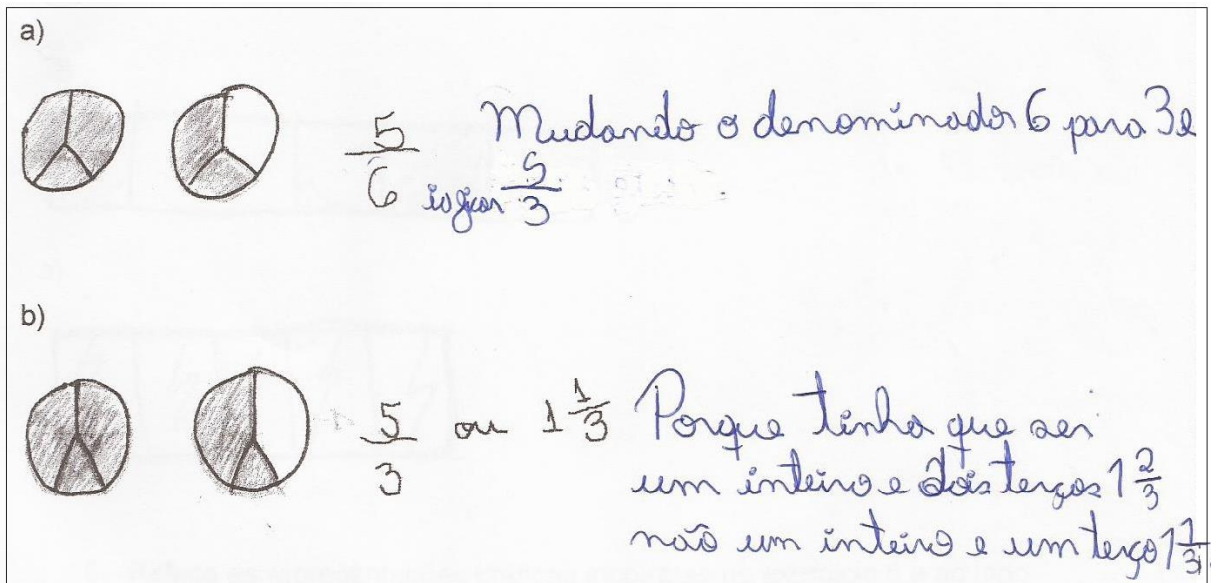 a)
5/6 Mudando o denominador 6 para 3 e
ia ficar 5/3
b)
5/3 ou 1 1/3 Porque tinha que ser
um inteiro e dois terços 1 2/3
não um inteiro e um terço 1 1/3